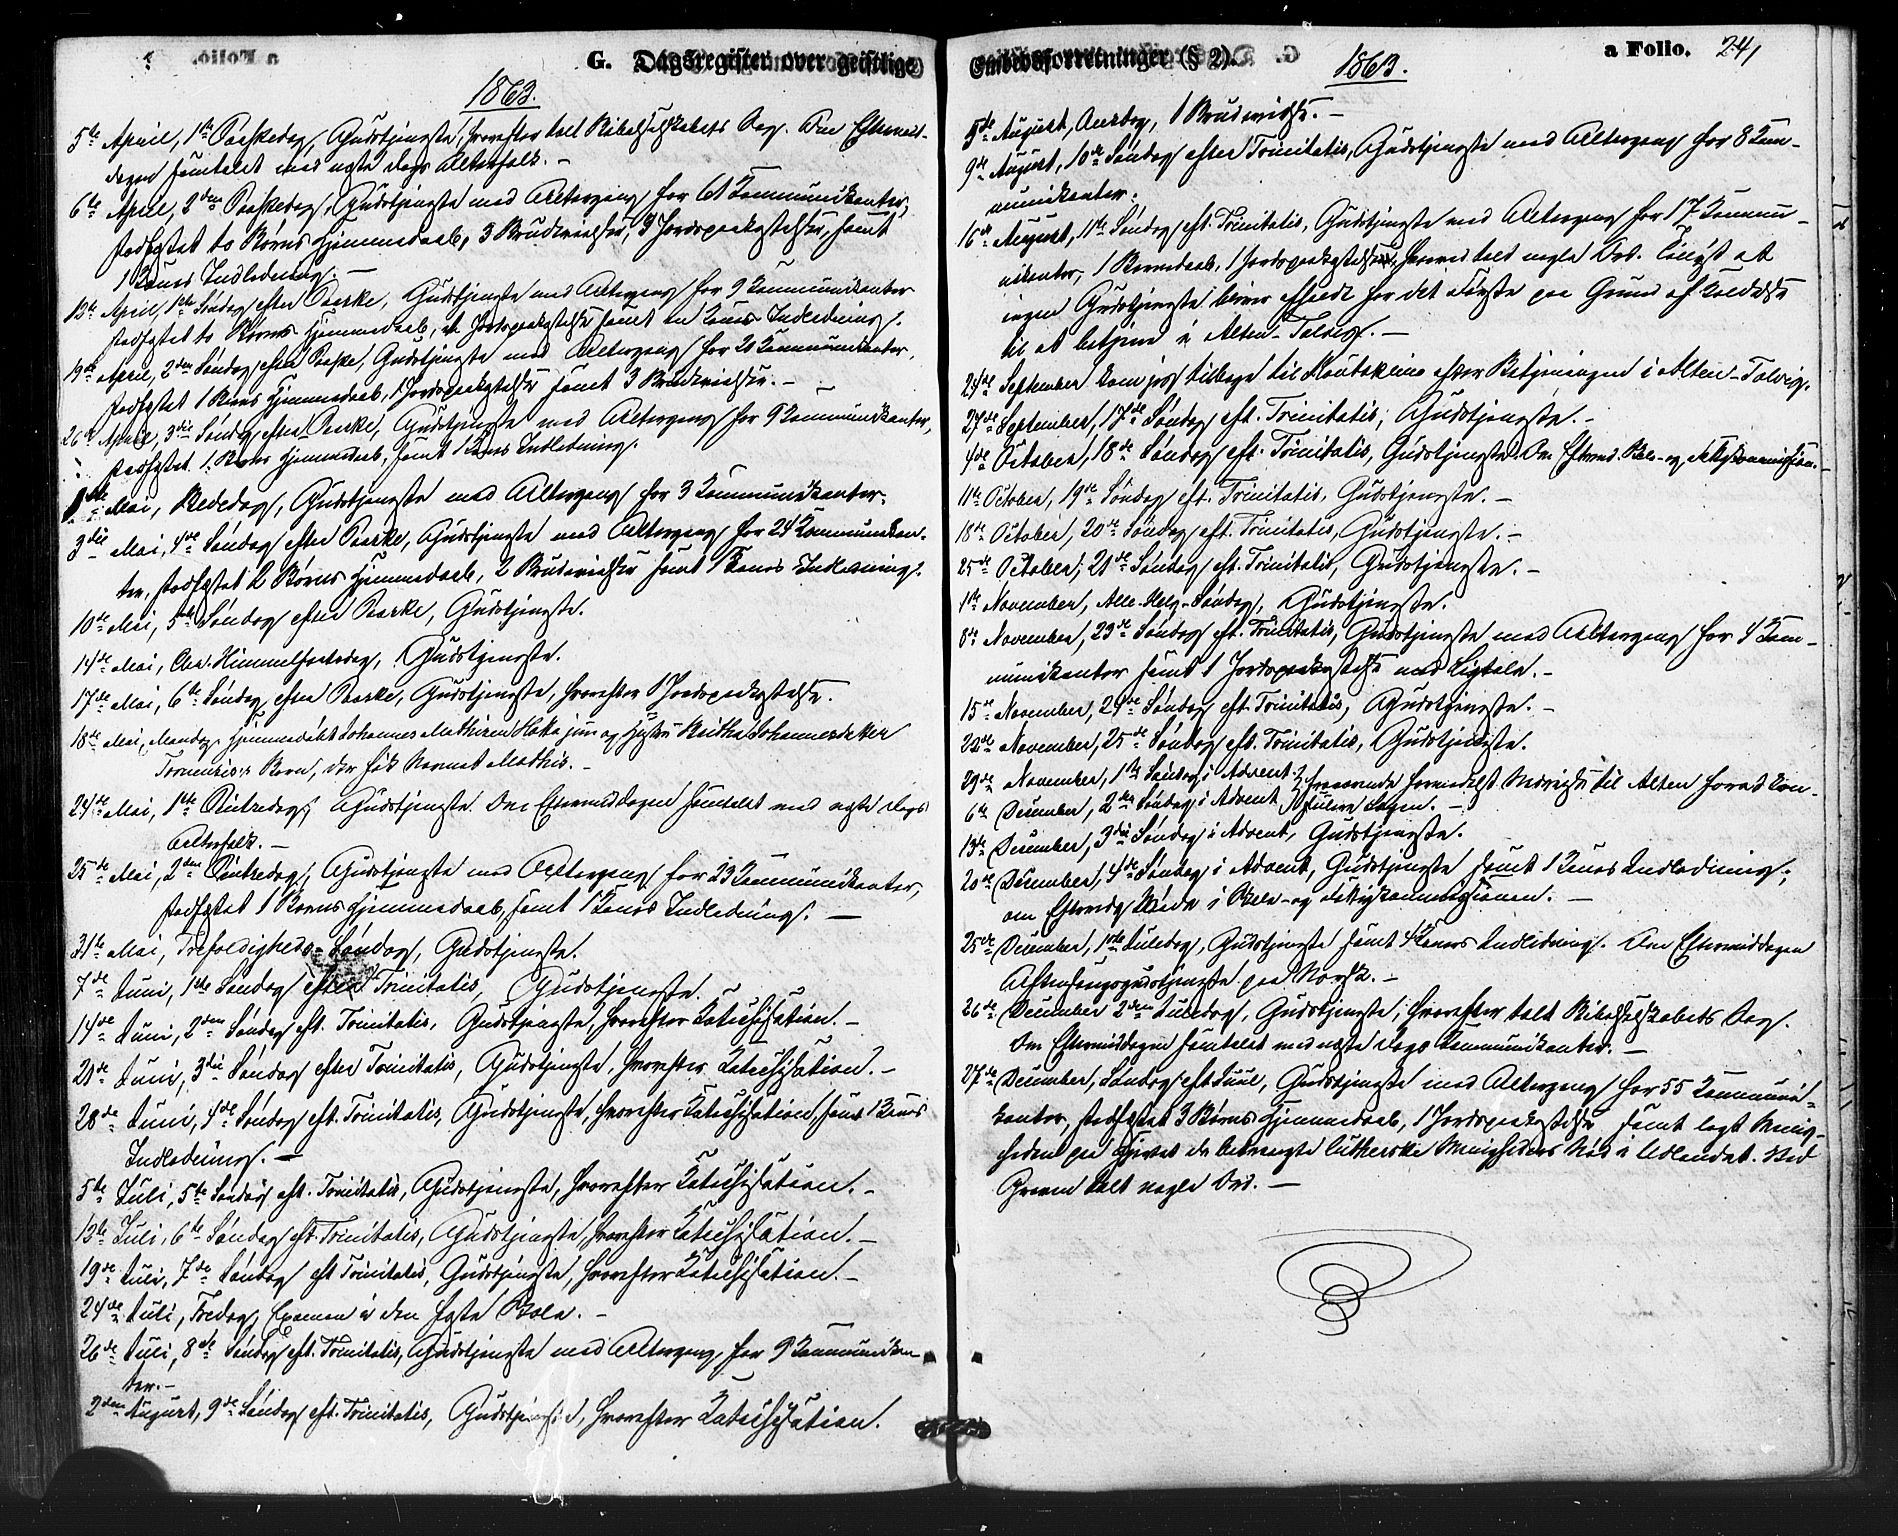 G. Dagsregister over geistlige
1863.
5te April, 1ste Paaskedag, Gudstjeneste, hvorefter holt Bibelselskabets Dag. Om Eftermid-
dagen Samtalet med næste Dags Altersfolk. –
6te April, 2den Paaskedag, Gudstjeneste med Altergang for 61 Kommunikanter,
stadfæstet to Børns Hjemmedaab, 3 Brudevielser, 3 Jordspaakastelser, samt
1 Kones Indledning. –
12te April, 1ste Søndag efter Paaske, Gudstjeneste med Altergang for 9 Kommunikanter
stadfæstet to Børns Hjemmedaab, et Jordspaakastelse samt en Kones Indledning.
19de April, 2den Søndag efter Paaske, Gudstjeneste med Altergang for 20 Kommunikanter,
stadfæstet 1 Barns Hjemmedaab, 1 Jordspaakastelse samt 3 Brudevielser. –
26de April, 3die Søndag efter Paaske, Gudstjeneste med Altergang for 9 Kommunikanter,
stadfæstet 1 Barns Hjemmedaab, samt 1 Kones Indledning.
1ste Mai, Bededag, Gudstjeneste med Altergang for 3 Kommunikanter.
3die Mai, 4de Søndag efter Paaske, Gudstjeneste med Altergang for 24 Kommunikan-
ter, stadfæstet 2 Børns Hjemmedaab, 2 Brudevielser samt 1 Kones Indledning.
10de Mai, 5te Søndag efter Paaske, Gudstjeneste.
14de Mai, Chr. Himmelfartsdag, Gudstjeneste.
17de Mai, 6te Søndag efter Paaske, Gudstjeneste, hvorefter 1 Jordspaakastelse.
18de Mai, Mandag, hjemmedøbt Johannes Mathisen Hætta jun. og Hustru Beritha Johannesdatter
Barn, der fik Navnet Mathis. –
24de Mai, 1ste Pintsedag, Gudstjeneste. Om Eftermiddagen Samtalet med næste Dags
Altersfolk. –
25de Mai, 2den Pintsedag, Gudstjeneste med Altergang for 23 Kommunikanter,
stadfæstet 1 Barns Hjemmedaab, samt 1 Kones Indledning. –
31te Mai, Trefoldigheds-Søndag, Gudstjeneste.
7de Juni, 1ste Søndag efter Trinitatis, Gudstjeneste.
14de Juni, 2den Søndag eft. Trinitatis, Gudstjeneste, hvorefter Katechisation. –
21de Juni, 3die Søndag efter Trinitatis, Gudstjeneste, hvorefter Katechisation. –
28de Juni, 4de Søndag eft. Trinitatis, Gudstjeneste, hvorefter Katechisation, samt 1 Kones
Indledning. –
5te Juli, 5te Søndag eft. Trinitatis, Gudstjeneste, hvorefter Katechisation. –
12te Juli, 6te Søndag eft. Trinitatis, Gudstjeneste, hvorefter Katechisation. –
19de Juli, 7de Søndag eft Trinitatis, Gudstjeneste, hvorefter Katechisation. –
24de Juli, Fredag, Examen i den faste Skole. –
26de Juli, 8de Søndag eft. Trinitatis, Gudstjeneste med Altergang for 9 Kommunikan-
ter. –
2den August, 9de Søndag eft. Trinitatis, Gudstjeneste, hvorefter Katechisation.
Embedsforretninger (§ 2).
a Folio. 241
1863.
5te August, Onsdag, 1 Brudevielse. –
9de August, 10de Søndag efter Trinitatis, Gudstjeneste med Altergang for 8 Kom-
munikanter.
16de August, 11te Søndag eft. Trinitatis, Gudstjeneste med Altergang for 17 Kommu-
nikanter, 1 Barnedaab, 1 Jordspaakastelse, hvorved holdt nogle Ord.
ingen Gudstjeneste bliver afholdt for det Første paa Grund af Kaldelse
til at betjene i Alten-Talvig. –
24de September kom jeg tilbage til Kautokeino efter Betjeningen i Alten-Talvig.
27de September, 17de Søndag eft. Trinitatis, Gudstjeneste. –
4de October, 18de Søndag eft. Trinitatis, Gudstjeneste. Om Efterm. Skole- og Fattigkommission. –
11te October, 19de Søndag eft. Trinitatis, Gudstjeneste. –
18de October, 20de Søndag eft. Trinitatis, Gudstjeneste. –
25de October, 21de Søndag eft. Trinitatis, Gudstjeneste. –
1ste November, Alle-Helg.-Søndag, Gudstjeneste.
8de November, 23de Søndag eft. Trinitatis, Gudstjeneste med Altergang for 4 Kom-
munikanter samt 1 Jordspaakastelse med Ligtale. –
15de November, 24de Søndag eft. Trinitatis, Gudstjeneste. –
22de November, 25de Søndag eft. Trinitatis, Gudstjeneste.
29de November, 1ste Søndag i Advent } fraværende formedelst Udreise til Alten forat kon-
6te December, 2den Søndag i Advent } sulere Lægen. –
13de December, 3die Søndag i Advent, Gudstjeneste.
20de December, 4de Søndag i Advent, Gudstjeneste samt 1 Kones Indledning;
om Efterm. Møde i Skole- og Fattigkommissionen. –
25de December, 1ste Juledag, Gudstjeneste samt 4 Koners Indledning. Om Eftermiddagen
Aftensangsgudstjeneste paa Norsk. –
26de December 2den Juledag, Gudstjeneste, hvorefter holt Bibelselskabets Dag.
Om Eftermiddagen Samtalet med næste Dags Kommunikanter. –
27de December, Søndag eft Juul, Gudstjeneste med Altergang for 55 Kommuni-
kanter, stadfæstet 3 Børns Hjemmedaab, 1 Jordspaakastelse samt lagt Menig-
heden paa Hjertet de betrængte lutherske Menigheders Nød i Udlandet. Ved
Graven talt nogle Ord. –